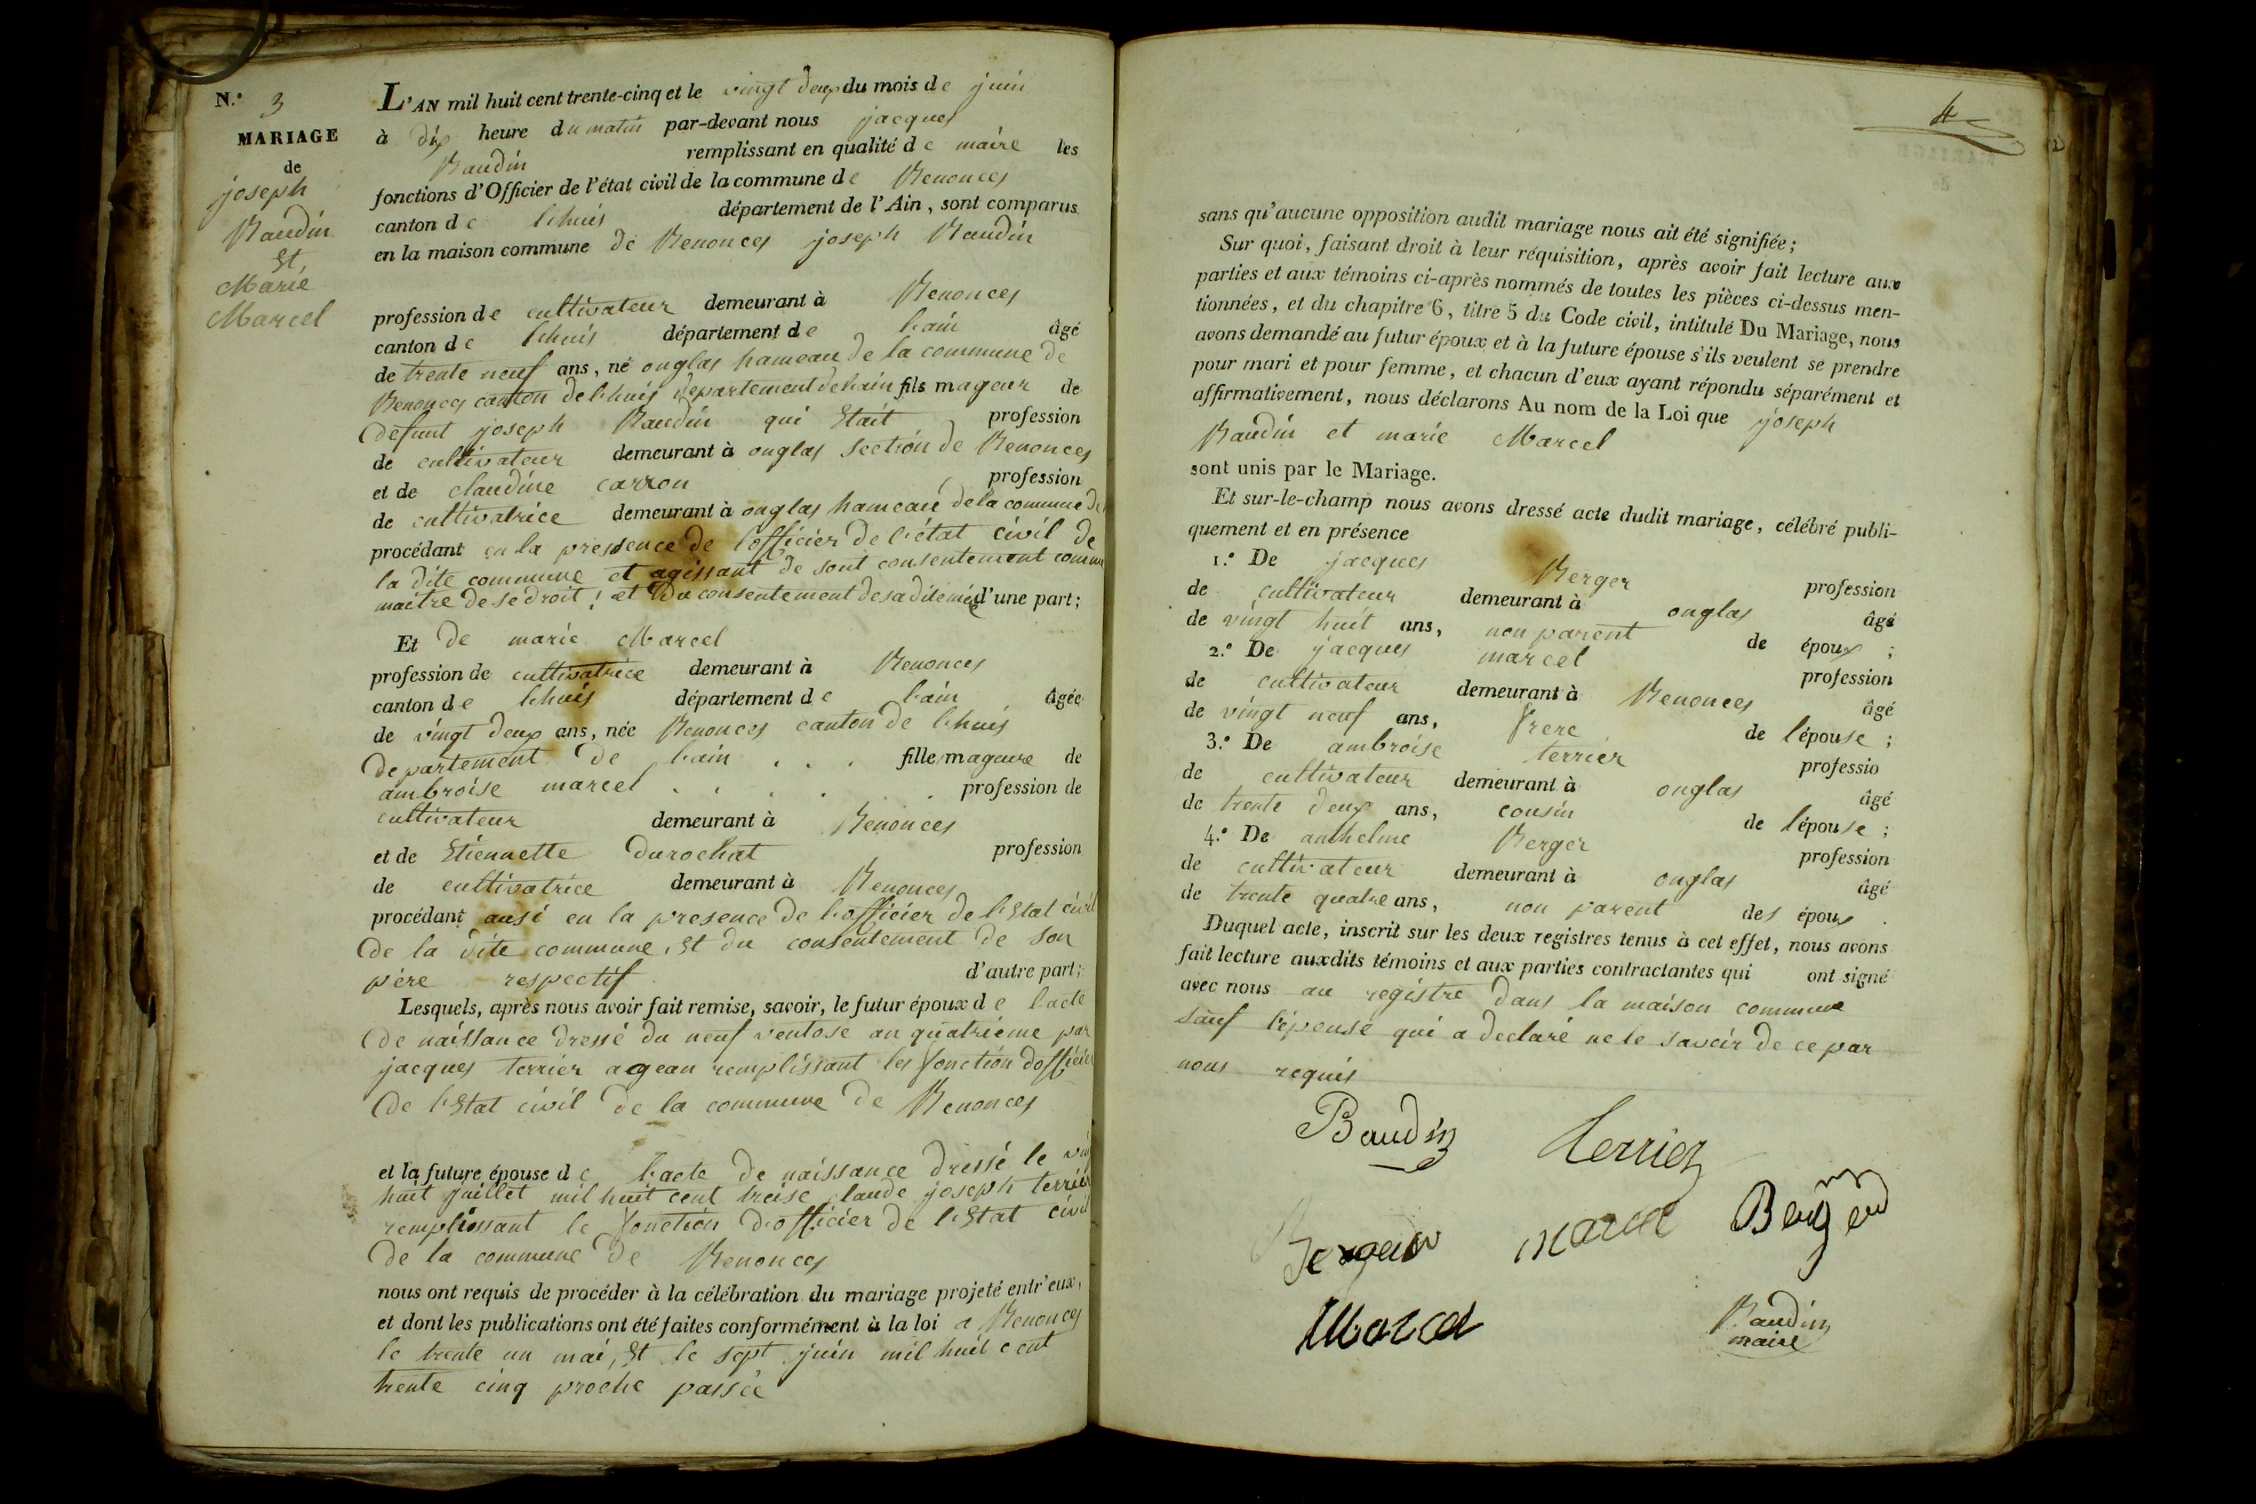 N.º 3
MARIAGE
de
joseph
Baudin
Et
Marie
Marcel
L'AN mil huit cent trente-cinq et le vingt deux du mois de juin
à dix heure du matin par-devant nous jacques
Baudin remplissant en qualité de maire les
fonctions d'Officier de l'état civil de la commune de Benonces
canton de lhuis département de l'Ain, sont comparus
en la maison commune de Benonces joseph Baudin
profession de cultivateur demeurant à Benonces
canton de lhuis département de lain âgé
de trente neuf ans, né onglas hameau de la commune de
Benonces canton de lhuis departement de lain fils mageur de
defunt joseph Baudin qui Etait profession
de cultivateur demeurant à onglas section de Benonces
et de claudine carron profession
de cultivatrice demeurant à onglas hameau de la commune de
procédant en la presence de lofficier de létat civil de
la dite commune et agissant de sont consentement comme
maitre de se droit ! et du consentement de sa dite mère d'une part;
Et de marie Marcel
profession de cultivatrice demeurant à Benonces
canton de lhuis département de lain âgée
de vingt deux ans, née Benonces canton de lhuis
departement de lain . . . fille mageure de
ambroise marcel . . . . . profession de
cultivateur demeurant à Benonces
et de Etiennette Durochat profession
de cultivatrice demeurant à Benonces
procédant ausi en la presence de lofficier de lEtat civil
de la dite commune, Et du consentement de son
père respectif d'autre part;
Lesquels, après nous avoir fait remise, savoir, le futur époux de lacte
de naissance dressé du neuf ventose an quatrième par
jacques terrier agean remplissant les fonction dofficier
de lEtat civil de la commune de Benonces
et la future épouse de lacte de naissance dressé le
huit juillet mil huit cent treise claude joseph terrier
remplissant le fonction dofficier de lEtat civil
de la commune de Benonces
nous ont requis de procéder à la célébration du mariage projeté entr'eux,
et dont les publications ont été faites conformément à la loi a Benonces
le trente un mai, Et le sept juin mil huit cent
trente cinq proche passée
4
sans qu'aucune opposition audit mariage nous ait été signifiée;
Sur quoi, faisant droit à leur réquisition, après avoir fait lecture aux
parties et aux témoins ci-après nommés de toutes les pièces ci-dessus men-
tionnées, et du chapitre 6, titre 5 du Code civil, intitulé Du Mariage, nous
avons demandé au futur époux et à la future épouse s'ils veulent se prendre
pour mari et pour femme, et chacun d'eux ayant répondu séparément et
affirmativement, nous déclarons Au nom de la Loi que joseph
Baudin et marie Marcel
sont unis par le Mariage.
Et sur-le-champ nous avons dressé acte dudit mariage, célébré publi-
quement et en présence
1.º De jacques Berger profession
de cultivateur demeurant à onglas âgé
de vingt huit ans, non parent de époux ;
2.º De jacques marcel profession
de cultivateur demeurant à Benonces âgé
de vingt neuf ans, frere de lépouse ;
3.º De ambroise terrier professio
de cultivateur demeurant à onglas âgé
de trente deux ans, cousin de lépouse ;
4.º De anthelme Berger profession
de cultivateur demeurant à onglas âgé
de trente quatre ans, non parent des époux .
Duquel acte, inscrit sur les deux registres tenus à cet effet, nous avons
fait lecture auxdits témoins et aux parties contractantes qui ont signé
avec nous au registre dans la maison commune
sauf lépouse qui a declaré ne le savoir de ce par
nous requis
Baudin Terrier
Berger marcel Berger
Marcel Baudin
maire